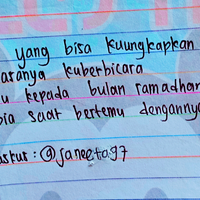 yang bisa kuungkapkan
aranya kuberbicara
u kepada bulan ramadhan
bia saat bertemu dengannya
askus : @saneeta97